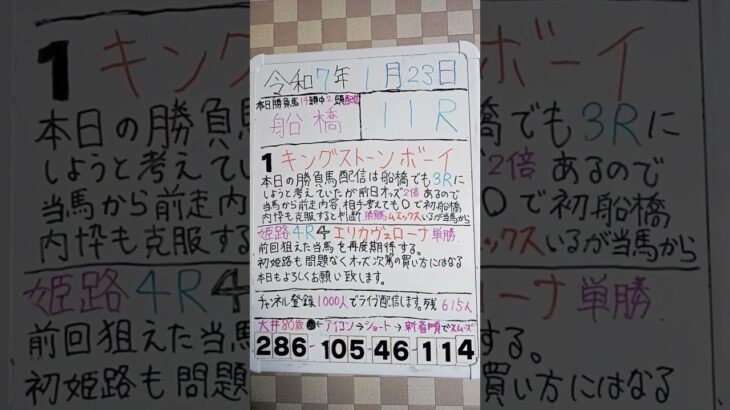 令和7年1月23日
本日勝負馬14頭中2頭配信
船橋 11R
1 キングストーンボーイ
本日の勝負馬配信は船橋でも3Rに
しようと考えていたが前日オッズ2倍あるので
当馬から前走内容、相手考えても〇で初船橋
内枠も克服すると判断し勝負ムエックスいるが当馬から
姫路4R4エリカヴェローナ単勝
前回狙えた当馬を再度期待する。
初姫路も問題なくオッズ次第の買い方にはなる
本日もよろしくお願い致します。
チャンネル登録1000人でライブ配信します。残615人
大井80歳●←アイコン→ショート→新着順でスムーズ
286-105-46-114